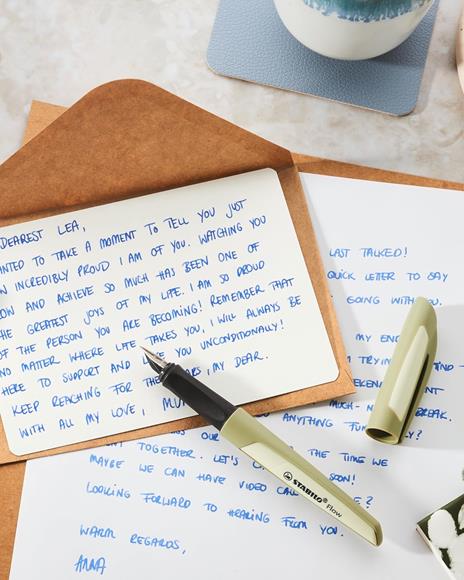 DEAREST LEA,
ANTED TO TAKE A MOMENT TO TELL YOU JUST
W INCREDIBLY PROUD I AM OF YOU. WATCHING YOU
OW AND ACHIEVE SO MUCH HAS BEEN ONE OF
HE GREATEST JOYS OF MY LIFE. I AM SO PROUD
OF THE PERSON YOU ARE BECOMING! REMEMBER THAT
NO MATTER WHERE LIFE TAKES YOU, I WILL ALWAYS BE
HERE TO SUPPORT AND YOU UNCONDITIONALLY!
KEEP REACHING FOR THE , MY DEAR.
WITH ALL MY LOVE, MU
LAST TALKED!
QUICK LETTER TO SAY
GOING WITH YOU.
MY EN
I TRYIN AND
MUCH- BREAK.
OUR ANYTHING FUN LY?
T TOGETHER. LET'S THE TIME WE
MAYBE WE CAN HAVE VIDEO CAL SOON!
E?
LOOKING FORWARD TO HEARING FROM YOU.
WARM REGARDS,
ANNA
STABILO® Flow